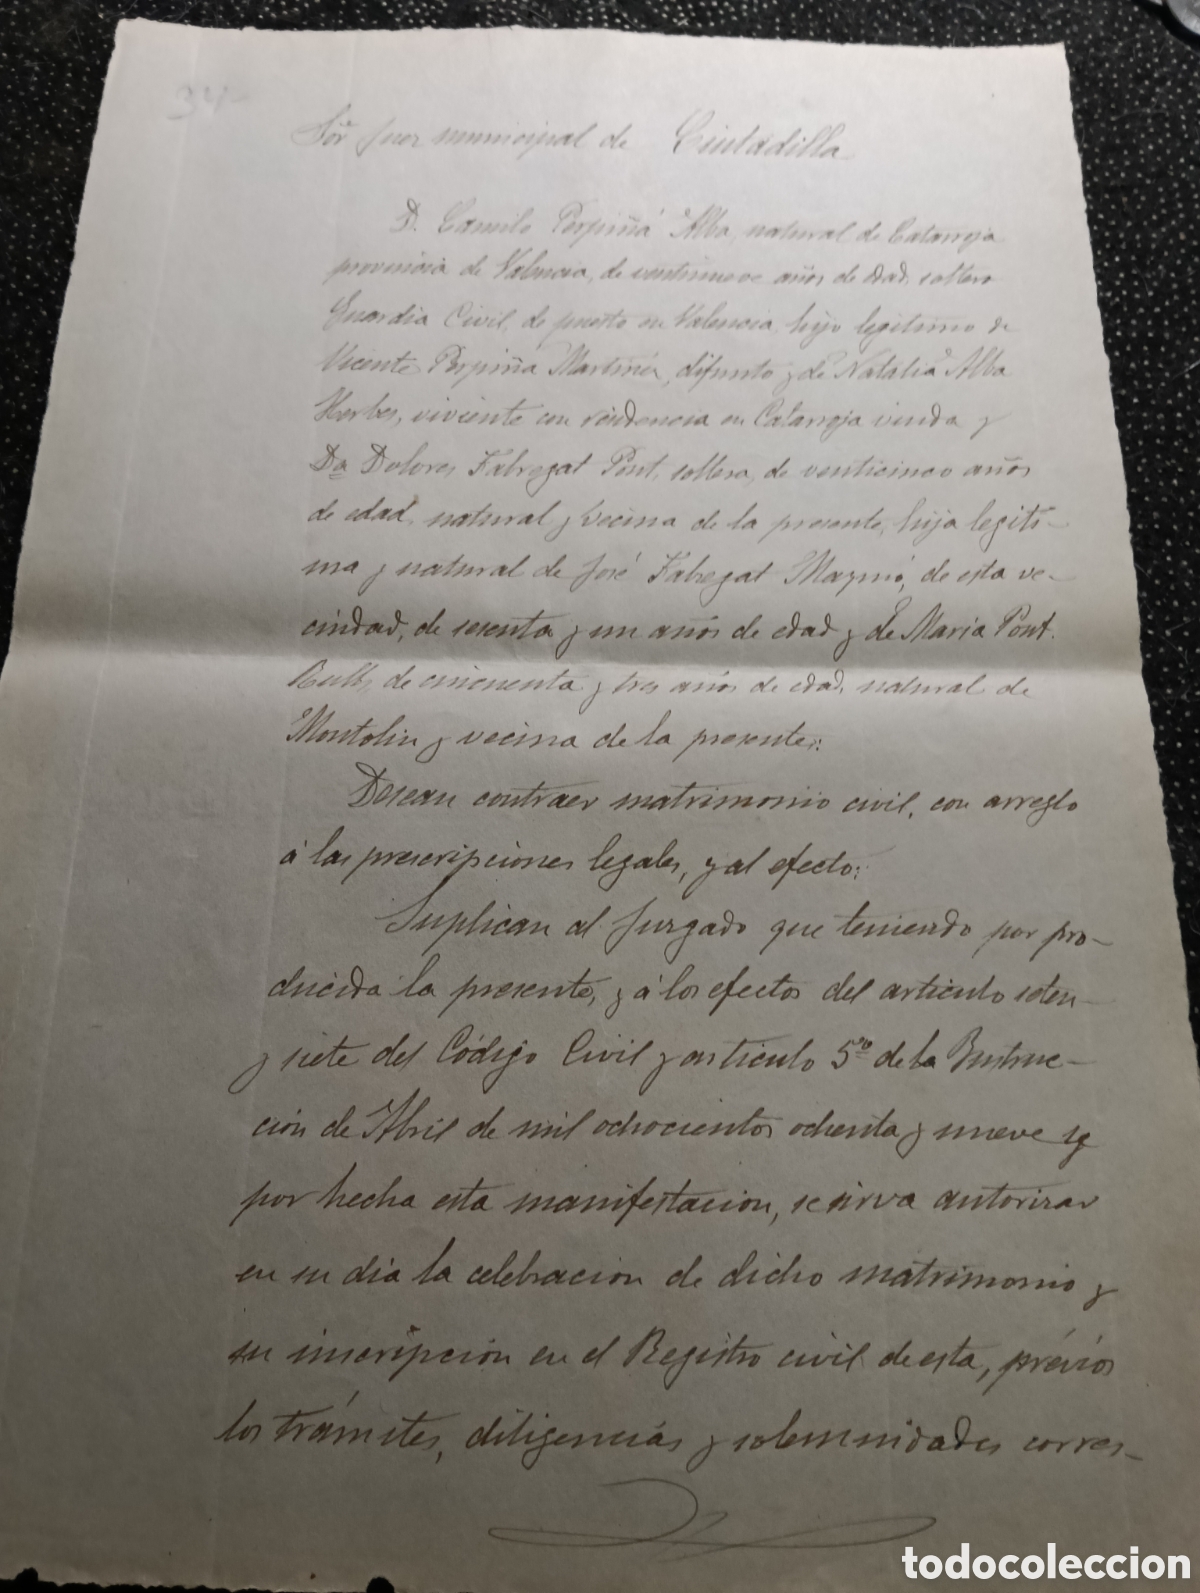 34-
Sor Juez municipal de Ciutadilla
D. Camilo Perpiñá Alba, natural de Catarroja
provincia de Valencia, de veintinueve años de edad, soltero
Guardia Civil, de puesto en Valencia, hijo legitimo de
Vicente Perpiña Martinez, difunto y de Natalia Alba
Herbes, viviente con residencia en Catarroja viuda y
Da Dolores Fabregat Pont, soltera, de venticinco años
de edad, natural y vecina de la presente, hija legiti-
ma y natural de José Fabregat Maymó, de esta ve-
cindad, de sesenta y un años de edad y de Maria Pont
de cincuenta y tres años de edad, natural de
Montoliu y vecina de la presente;:
Desean contraer matrimonio civil, con arreglo
á las prescripciones legales, y al efecto:
Suplican al Juzgado que teniendo por pro-
ducida la presente, y á los efectos del articulo seten-
y siete del Código Civil y articulo 5º de la Instruc-
ción de Abril de mil ochocientos ochenta y nueve
por hecha esta manifestacion, se sirva autorizar
en su dia la celebracion de dicho matrimonio y
su inscripcion en el Registro civil de esta, prévios
los trámites, diligencias y solemnidades corres-
todocoleccion